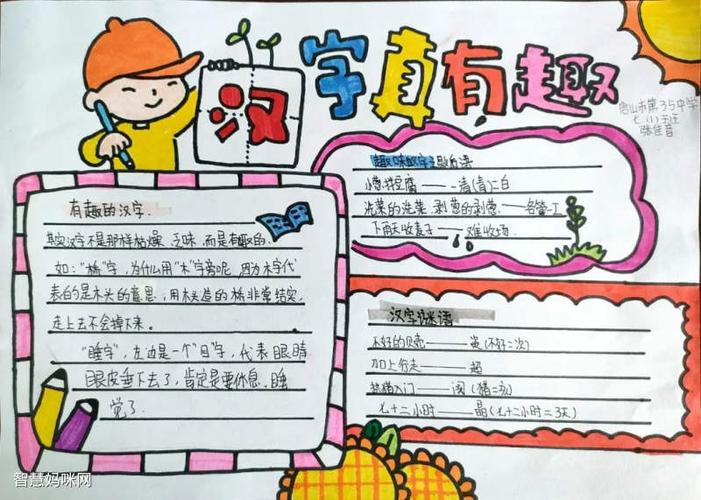 汉字真有趣
唐山市第35中学
七(1)
张佳音
有趣的汉字.
其实汉字不是那样枯燥、乏味,而是有趣的.
如:"桥"字,为什么用"木"字旁呢,因为木字代
表的是木头的意思,用木头造的桥非常结实,
走上去不会掉下来。
"睡字",左边是一个"目"字,代表眼睛
眼皮垂下去了,肯定是要休息、睡
觉了.
趣味汉字之歇后语
小葱拌豆腐——一清(青)二白
洗菜的洗菜,剥葱的剥葱——各管一工
下雨天收麦子——难收场
汉字谜语
不好的贝壳——(不好=次)
入门——阂(猪=亥)
七十二小时——晶(七十二小时=3天)
智慧妈咪网